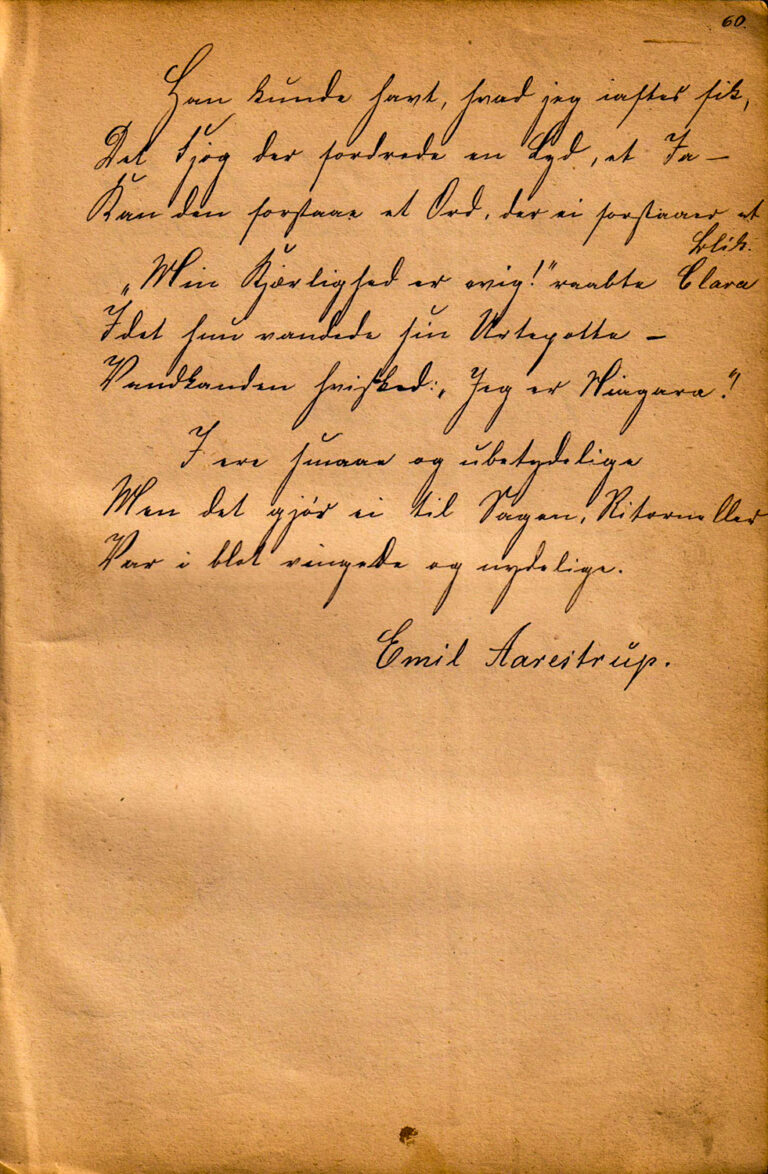 60.
Han kunde havt, hvad jeg iaftes fik,
Det Fjog der fordrede en Lyd, et Ja —
Kan den forstaae et Ord, der ei forstaaer et
Blik.
„Min Kjærlighed er evig!" raabte Clara
Idet hun vandede sin Urtepotte —
Vandkanden hvisked: „Jeg er Niagara."!
I ere smaae og ubetydelige
Men det gjør ei til Sagen, Ritorneller
Vær i blot vingede og nydelige.
Emil Aarestrup.